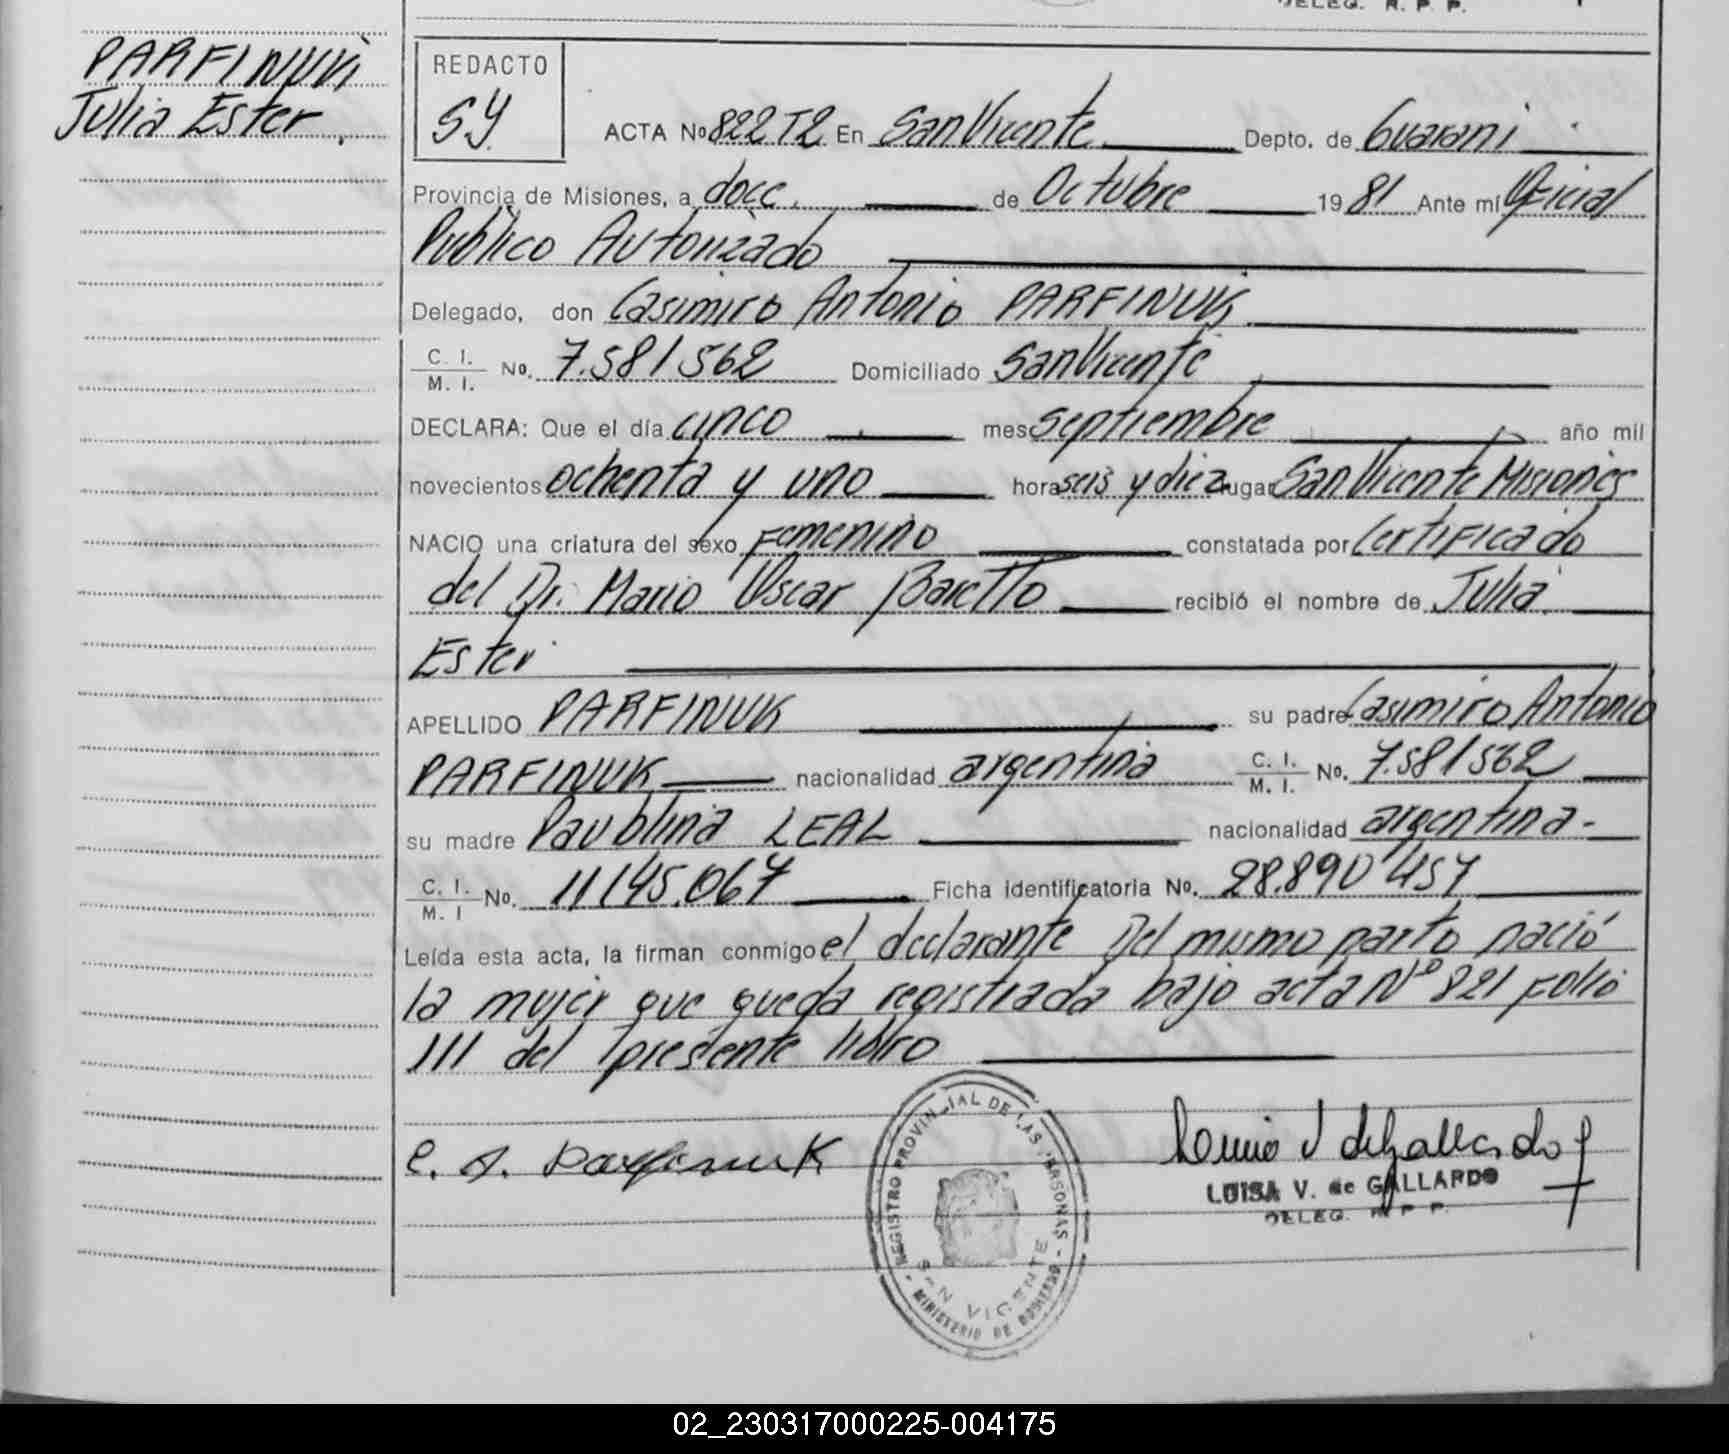 DELEG. R. P. P.
PARFINUK
Julia Ester.
REDACTO
SY
ACTA No 822 T2 En San Vicente Depto. de Guarani
Provincia de Misiones, a doce de Octubre 1981 Ante mí Oficial
Publico Autorizado
Delegado, don Casimiro Antonio PARFINUK
C. I.
M. I. No. 7.581562 Domiciliado San Vicente
DECLARA: Que el día cinco mes septiembre año mil
novecientos ochenta y uno hora seis y diez lugar San Vicente Misiones
NACIO una criatura del sexo Femenino constatada por Certificado
del Dr. Mario Oscar Baretto recibió el nombre de Julia
Ester
APELLIDO PARFINUK su padre Casimiro Antonio
PARFINUK nacionalidad argentina C. I.
M. I. No. 7.581562
su madre Paublina LEAL nacionalidad argentina-
C. I.
M. I No. 11145.067 Ficha identificatoria No. 28.890457
Leída esta acta, la firman conmigo el declarante Del mismo parto nació
la mujer que queda registrada bajo acta Nº 821 folio
111 del presente libro
C. A. Parfinuk
REGISTRO PROVINCIAL DE LAS PERSONAS - MINISTERIO DE GOBIERNO -
SAN VICENTE
LUISA V. de GALLARDO
DELEG. R. P. P.
02_230317000225-004175